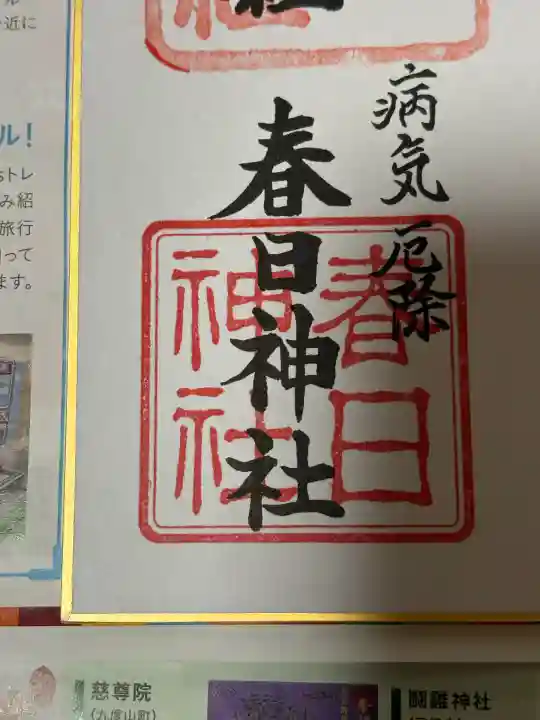 近に
ル!
トレ
み紹
旅行
って
ます。
社
病気厄除
春日神社
春日
神社
慈尊院
(九度山町)
闘雞神社